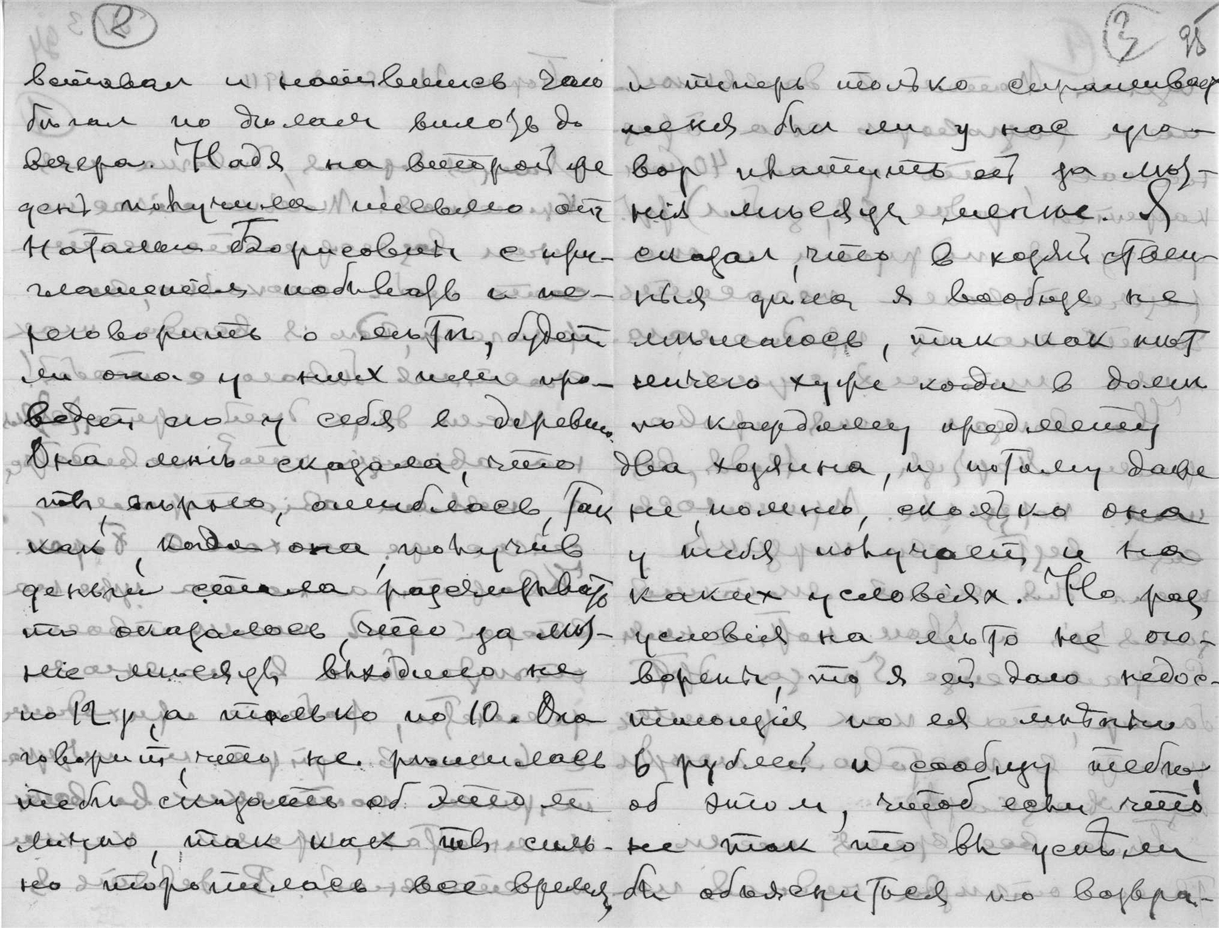 2
вставал и напившись чаю
бѣгал по дѣлам вплоть до
вечера. Надя на второй же
день получила письмо от
Натальи Борисовны с при-
глашеніем побывать и пе-
реговорить о лѣтѣ, будет
ли она у них или про-
ведет его у себя в деревнѣ.
Она мнѣ сказала, что
ты, вѣрно, ошиблась, так
как, когда она, получив
деньги стала разсчитывать
то оказалось, что за лѣт-
ніе мѣсяцы выходило не
по 12 р, а только по 10. Она
говорит, что не рѣшилась
тебѣ сказать об этом
лично, так как ты силь-
но торопилась все время,
3 95
и теперь только спрашивает
меня был ли у нас уго-
вор платить ей за лѣт-
нія мѣсяцы меньше. Я
сказал, что в хозяйствен-
ныя дѣла я вообще не
мѣшаюсь, так как нѣт
ничего хуже когда в домѣ
по каждому предмету
два хозяина, и потому даже
не помню, сколько она
у тебя получает и на
каких условіях. Но раз
условія на лѣто не ого-
ворены, то я ей даю недос-
тающія по ея мнѣнію
6 рублей и сообщу тебѣ
об этом, чтоб если что
не так то вы успѣли
бы объясниться по возвра-